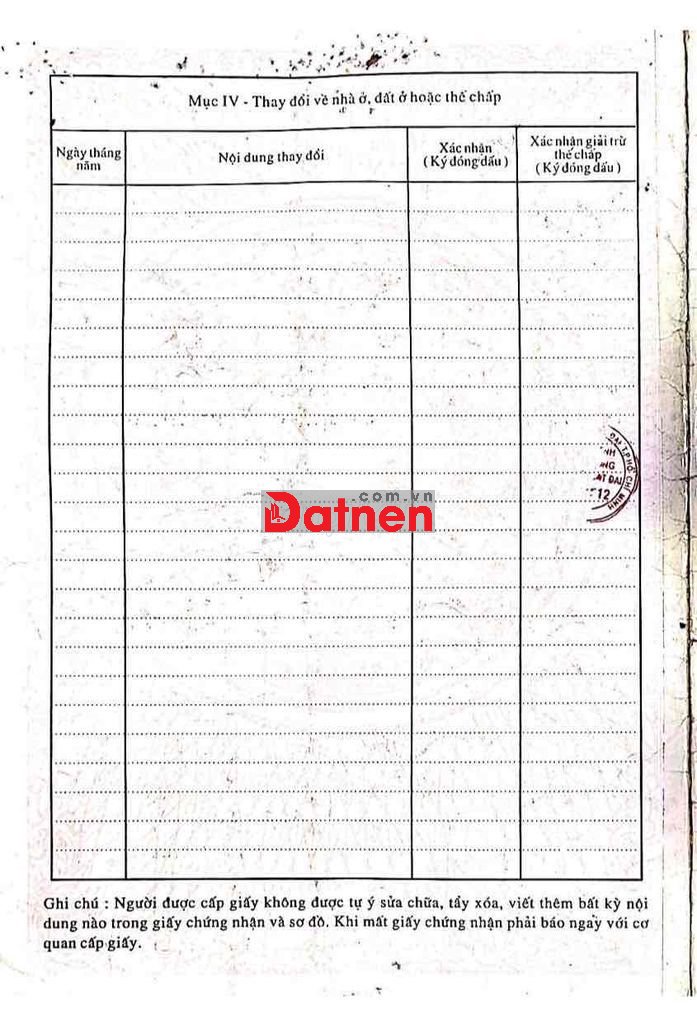 Mục IV - Thay đổi về nhà ở, đất ở hoặc thế chấp
Ngày tháng
năm
Nội dung thay đổi
Xác nhận
( Ký đóng dấu )
Xác nhận giải trừ
thế chấp
( Ký đóng dấu )
T.PHỐ CHÍ MINH
ĐẤT ĐAI
12
.com.vn
Datnen
Ghi chú : Người được cấp giấy không được tự ý sửa chữa, tẩy xóa, viết thêm bất kỳ nội
dung nào trong giấy chứng nhận và sơ đồ. Khi mất giấy chứng nhận phải báo ngay với cơ
quan cấp giấy.